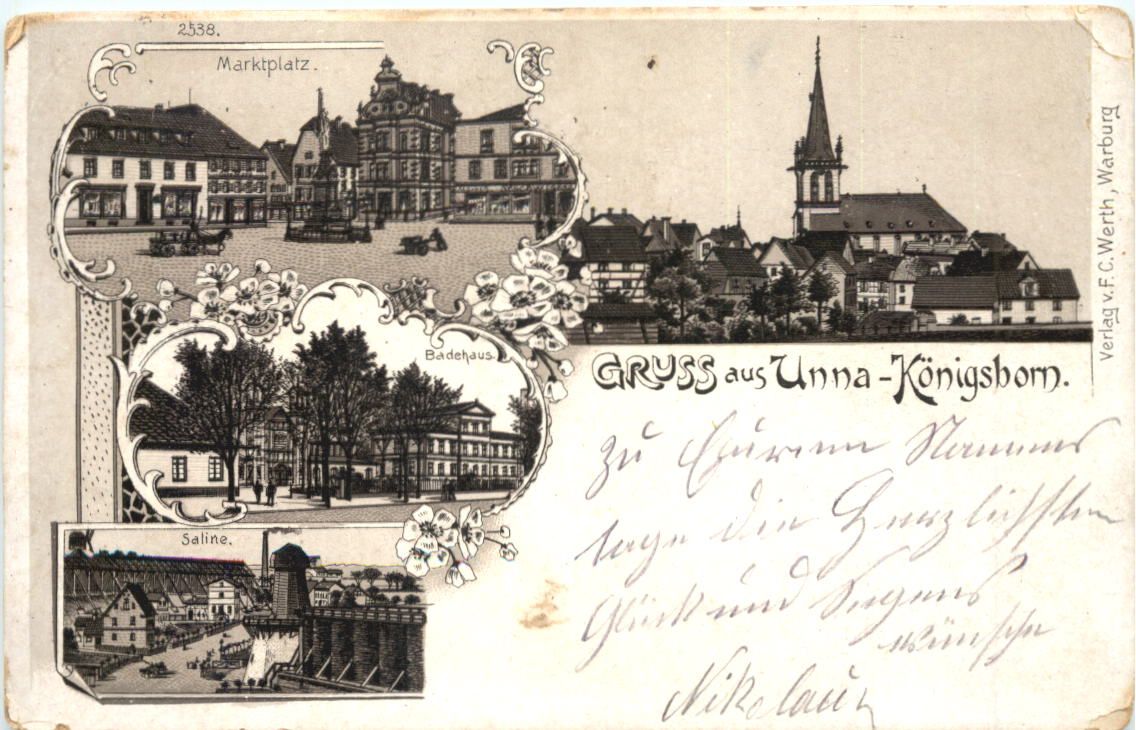 2538.
Marktplatz.
Badehaus.
Saline.
GRUSS aus Unna-Königsborn.
Verlag v. F. C. Werth, Warburg
zu Eurem Namens
tage die Herzlichsten
Glück und Segens
wünsche
Nikolaus